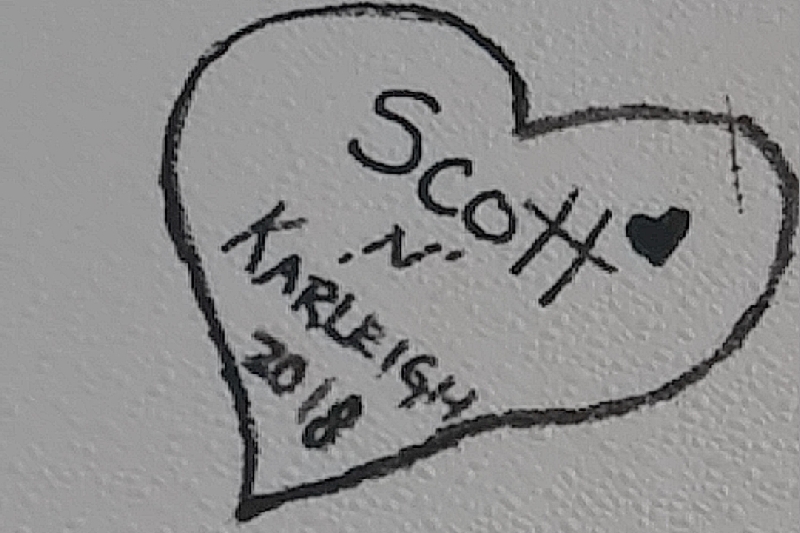 Scott ♥
·N·
KARLEIGH
2018